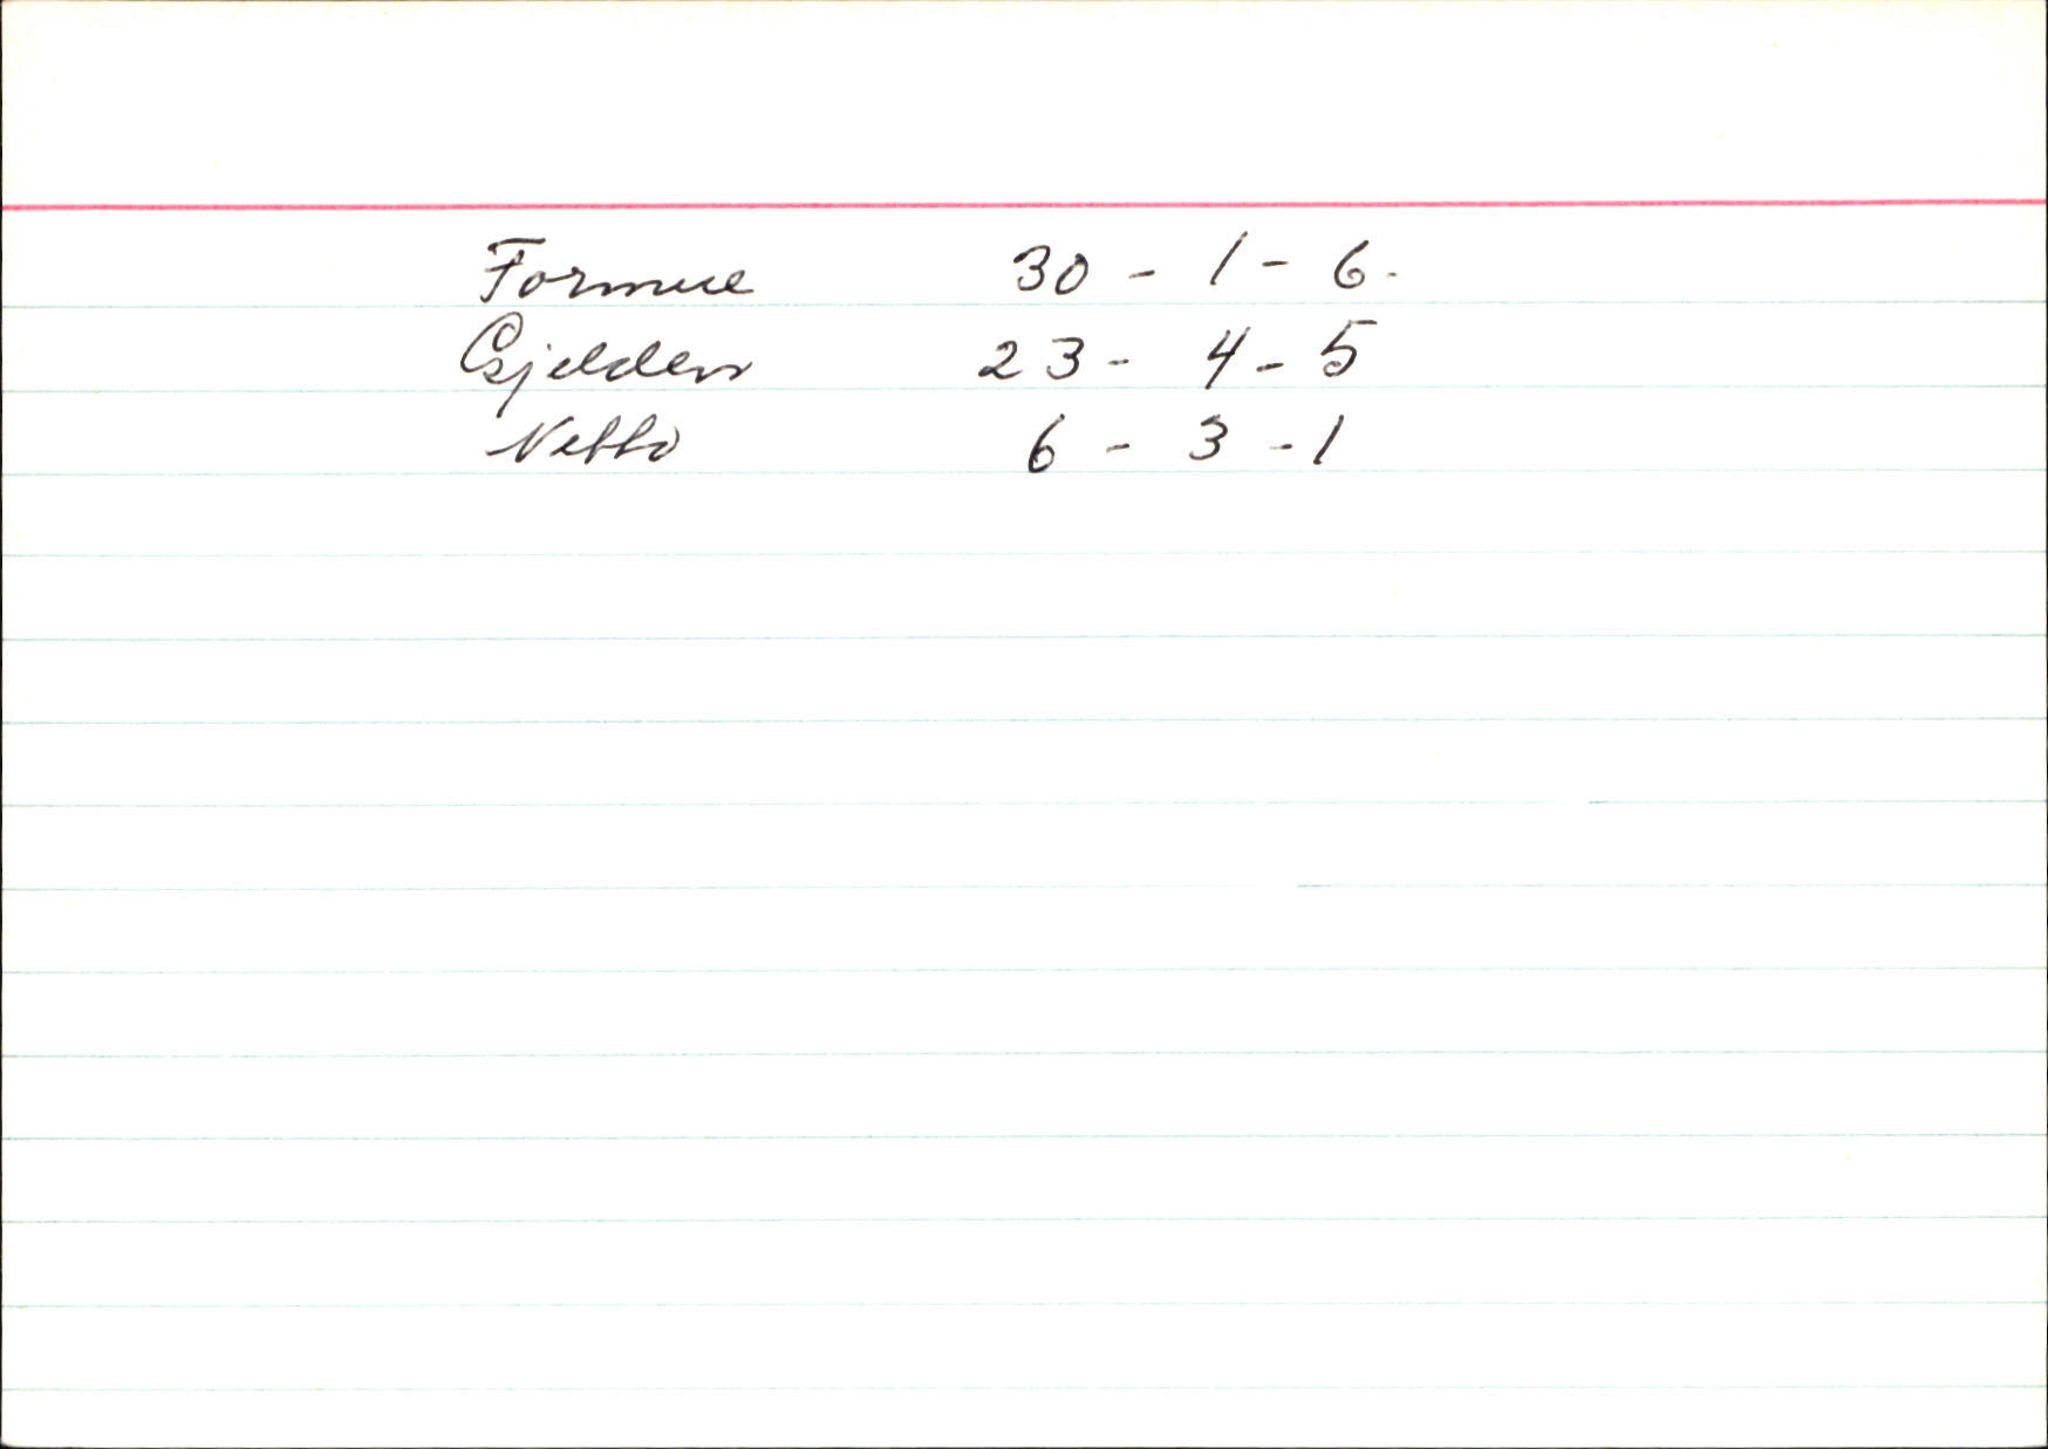 Formue 30 - 1 - 6.
Gjelden 23 - 4 - 5
Netto 6 - 3 - 1